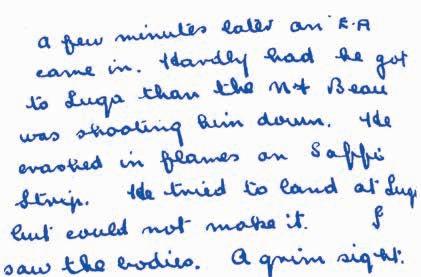 a few minutes later an E.A
came in. Hardly had he got
to Luqa than the Nt Beau
was shooting him down. He
crashed in flames on Saffi
strip. He tried to land at Luqa
but could not make it. I
saw the bodies. A grim sight.